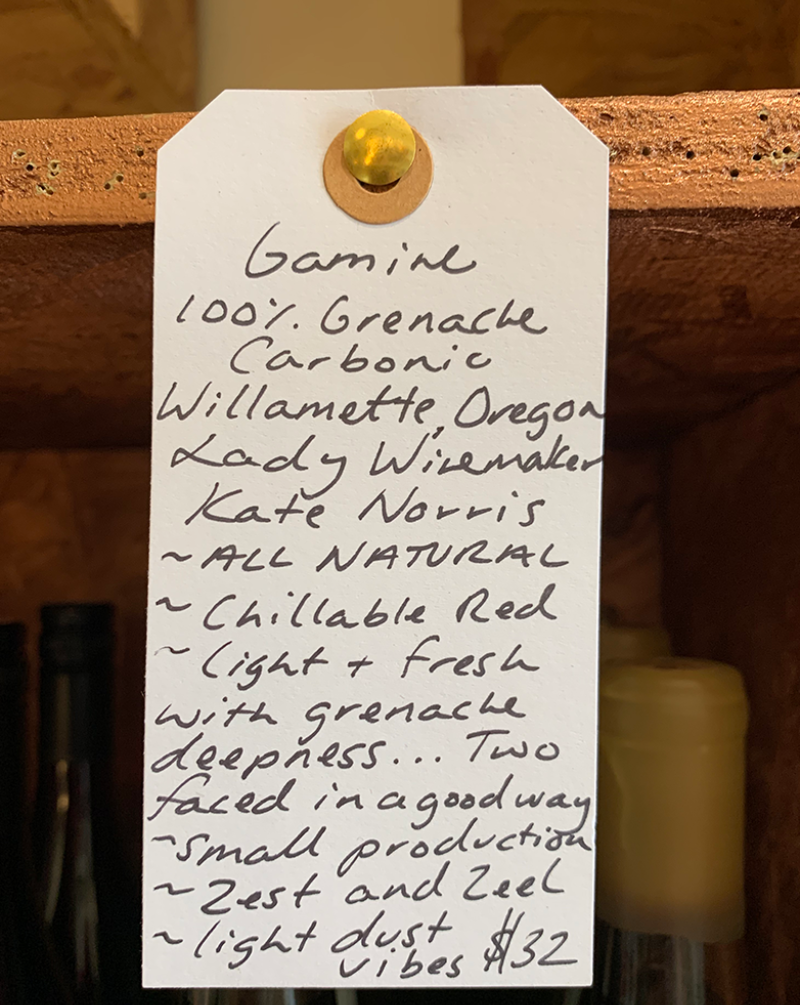 Gamine
100% Grenache
Carbonic
Willamette, Oregon
Lady Winemaker
Kate Norris
~ ALL NATURAL
~ Chillable Red
~ light + fresh
with grenache
deepness... Two
faced in a good way
~ small production
~ Zest and Zeel
~ light dust
vibes $32